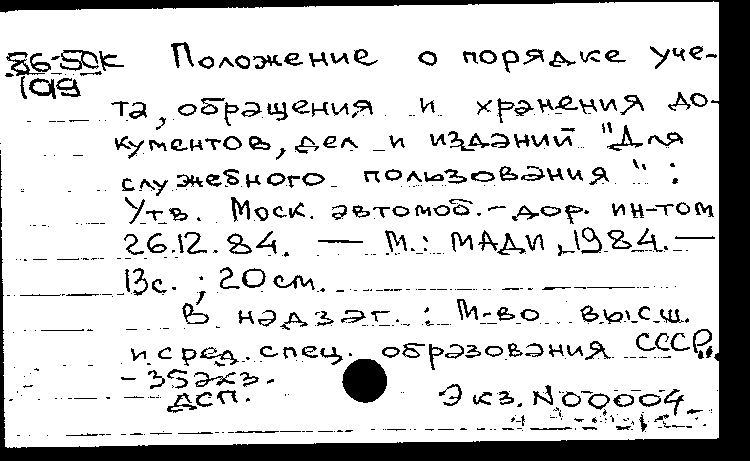 86-5ДК Положение о порядке уче-
1019
та, обращения и хранения до-
кументов, дел и изданий "Для
служебного пользования" :
Утв. Моск. автомоб.-дор. ин-том
26.12.84. — М.: МАДИ, 1984.—
13с. ; 20 см.
В надзаг. : М-во высш.
и сред. спец. образования СССР.
- 35экз.
ДСП. Экз. N00004